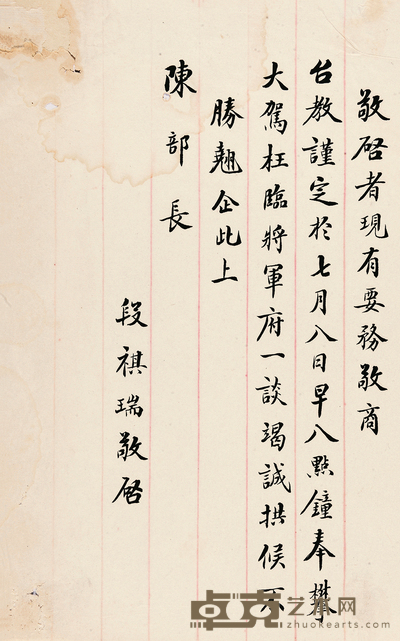 敬啓者現有要務敬商
台教謹定於七月八日早八點鐘奉攀
大駕枉臨將軍府一談竭誠拱候不
勝翹企此上
陳部長
段祺瑞敬啓
卓克艺术网
zhuokearts.com